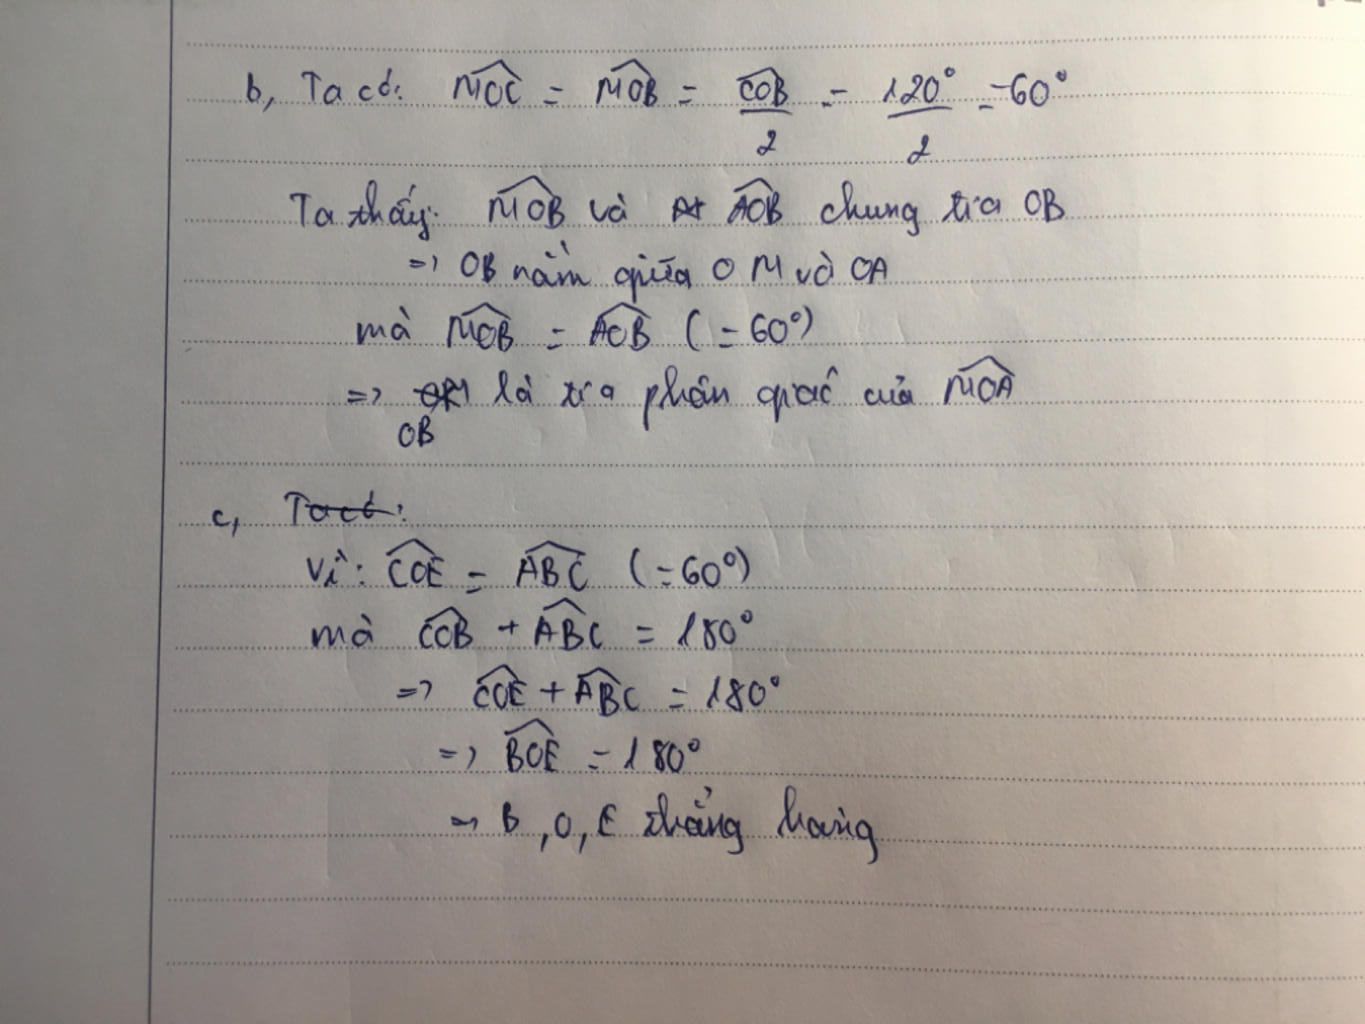 b, Ta có: MOC = MOB = COB/2 = 120°/2 = 60°
Ta thấy: MOB và AOB chung tia OB
=> OB nằm giữa OM và OA
mà MOB = AOB (= 60°)
=> OB là tia phân giác của MOA
c, Ta có:
Vì: COE = ABC (= 60°)
mà COB + ABC = 180°
=> COE + ABC = 180°
=> BOE = 180°
=> B, O, E thẳng hàng